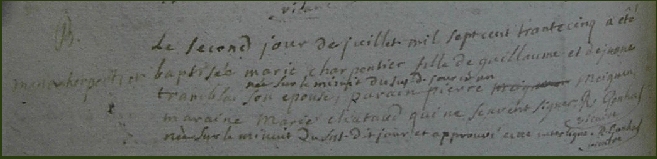 vicaire
B.
Le second jour de juillet mil sept cent trante cinq a été
baptisée marie charpentier fille de guillaume et de jeanne
née sur le minuit du sus dit jour
tramblai son epouse, parain pierre meignin
maraine Marie chataud qui ne scavent signer
vicaire
née sur le minuit du sus dit jour et approuvé
vicaire